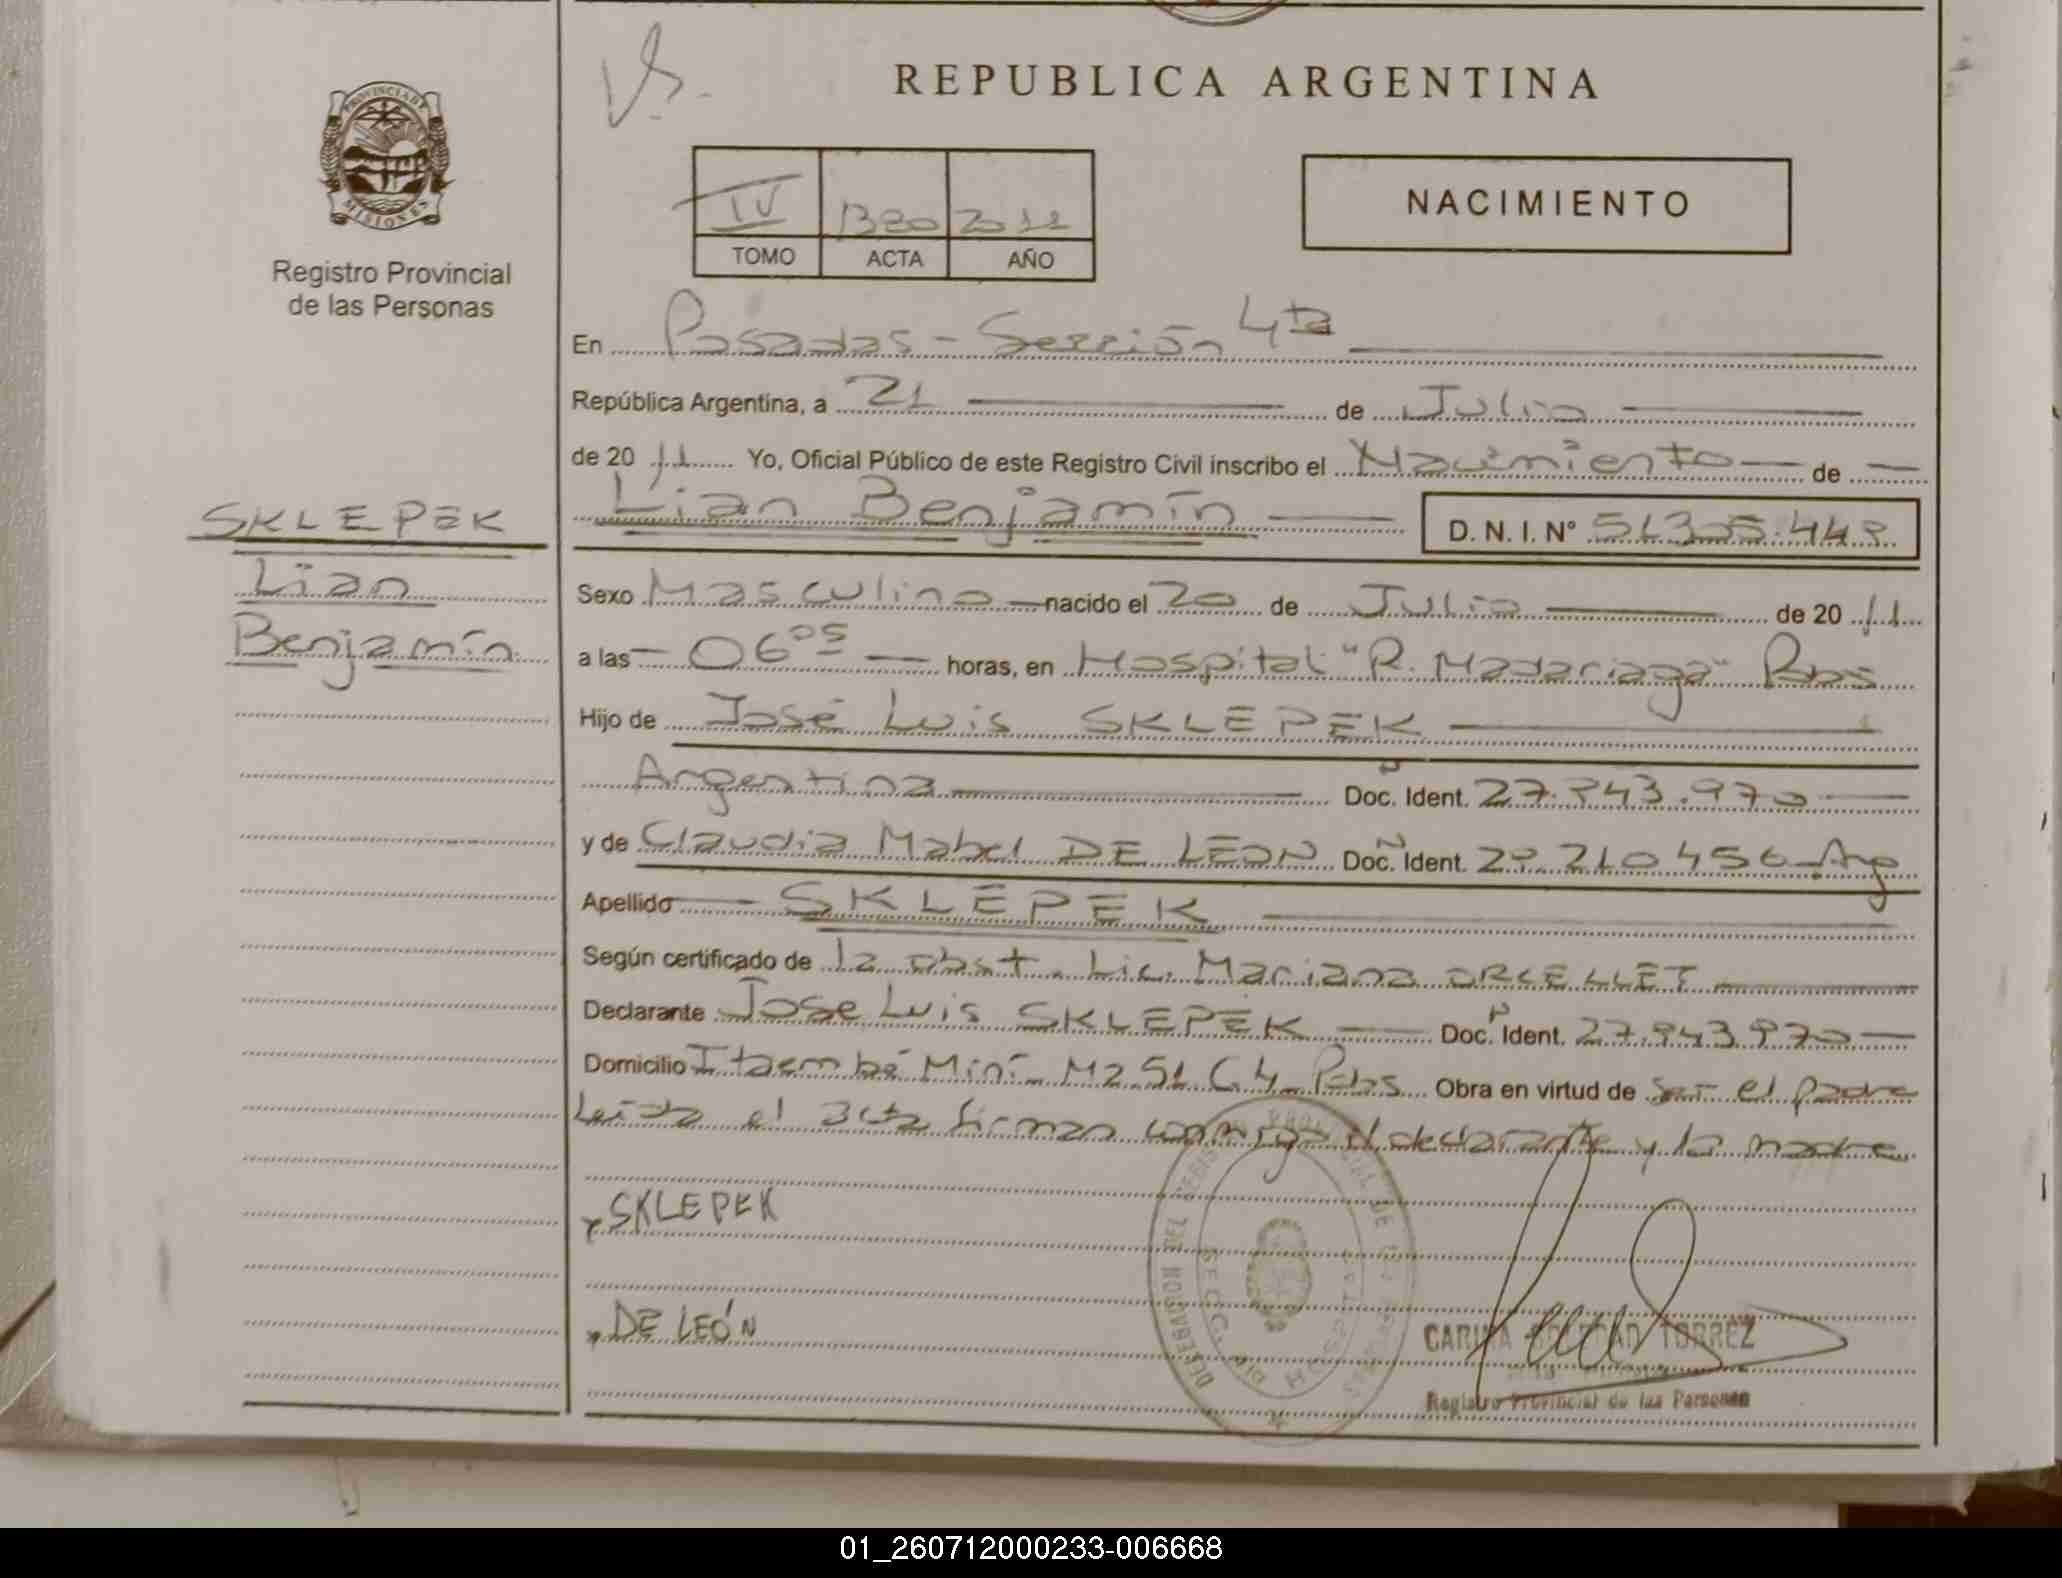 REPUBLICA ARGENTINA
PROVINCIA DE
MISIONES
Registro Provincial
de las Personas
IV 2011
TOMO ACTA AÑO
NACIMIENTO
En Posadas - Sección 4ta
República Argentina, a 21 de Julio
de 20 11 Yo, Oficial Público de este Registro Civil inscribo el Nacimiento de
Lian Benjamín D. N. I. Nº
SKLEPEK
Lian
Benjamín
Sexo Masculino nacido el 20 de Julio de 20 11
a las 06 05 horas, en Hospital "R. Madariaga" Pdas
Hijo de José Luis SKLEPEK
Argentina Doc. Ident.
y de Claudia Mabel DE LEON Doc. Ident. Arg
Apellido SKLEPEK
Según certificado de la obst. Lic. Mariana
Declarante Jose Luis SKLEPEK Doc. Ident.
Domicilio Itaembé Miní Mz 51 C 4 Pdas Obra en virtud de ser el padre
Leída el acta firman conmigo el declarante y la madre
SKLEPEK
DE LEÓN
CARINA SOLEDAD TORREZ
Registro Provincial de las Personas
01_260712000233-006668